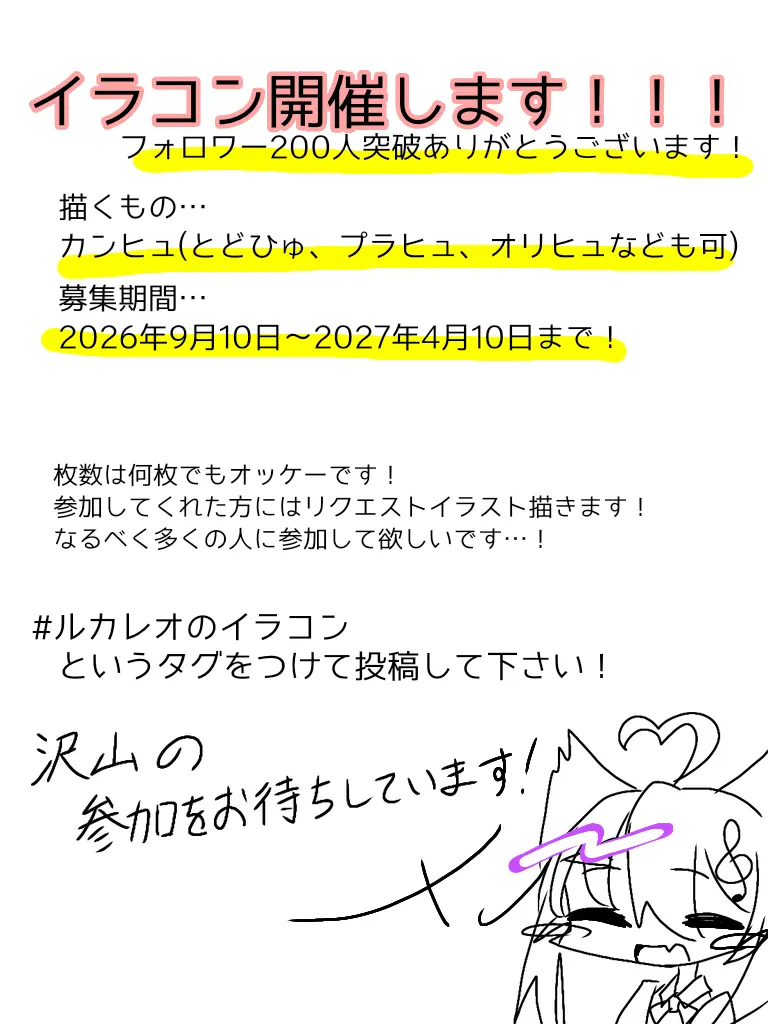 イラコン開催します！！！
フォロワー200人突破ありがとうございます！
描くもの…
カンヒュ(とどひゅ、プラヒュ、オリヒュなども可)
募集期間…
2026年9月10日～2027年4月10日まで！
枚数は何枚でもオッケーです！
参加してくれた方にはリクエストイラスト描きます！
なるべく多くの人に参加して欲しいです…！
#ルカレオのイラコン
というタグをつけて投稿して下さい！
沢山の
参加をお待ちしています！